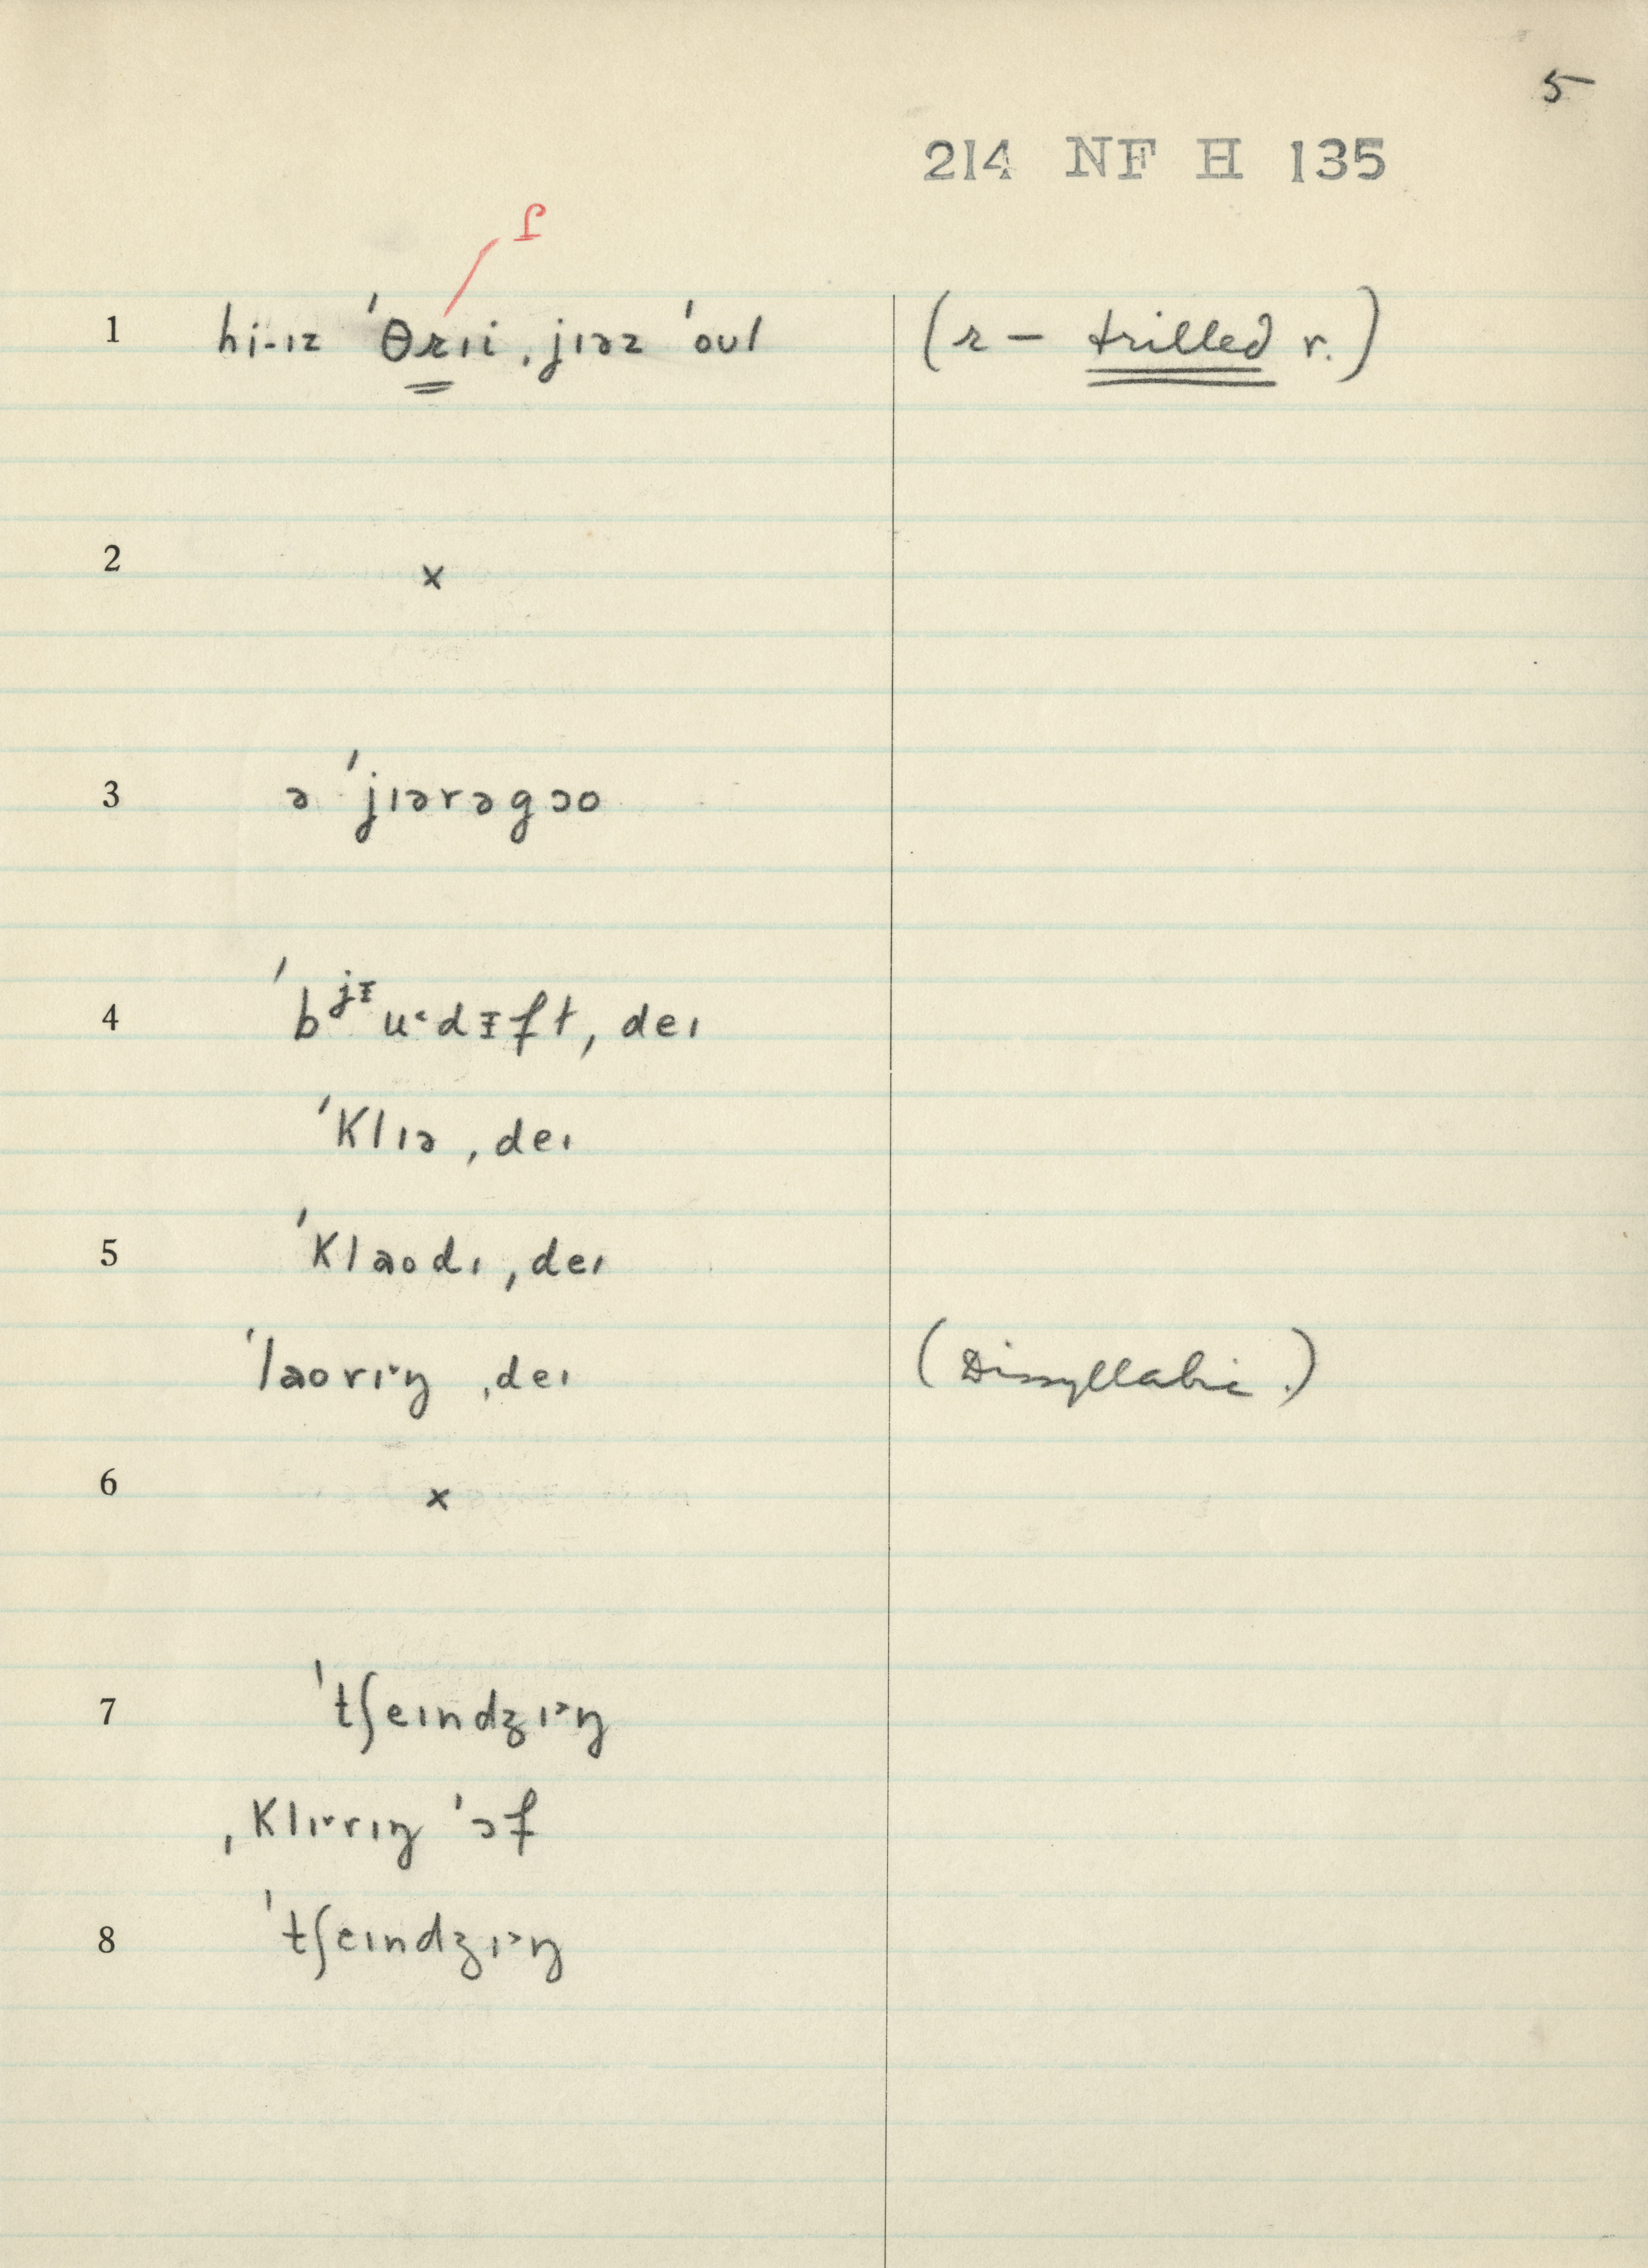 5
214 NF H 135
ɾ
1 hi-ɪz ˈθrɪi ˌjɪəz ˈoul (r – trilled r.)
2 ×
3 ə ˈjɪərəgɔo
4 ˈbʲᵻuˑdᵻft, deɪ
ˈklɪə ˌdeɪ
5 ˈklaodɪ ˌdeɪ
ˈlaorɪ˞ŋ ˌdeɪ (Dissyllabic.)
6 ×
7 ˈtʃeɪndʒɪ˃ŋ
ˌklɪ˞rɪŋ ˈɔf
8 ˈtʃeɪndʒɪ˃ŋ